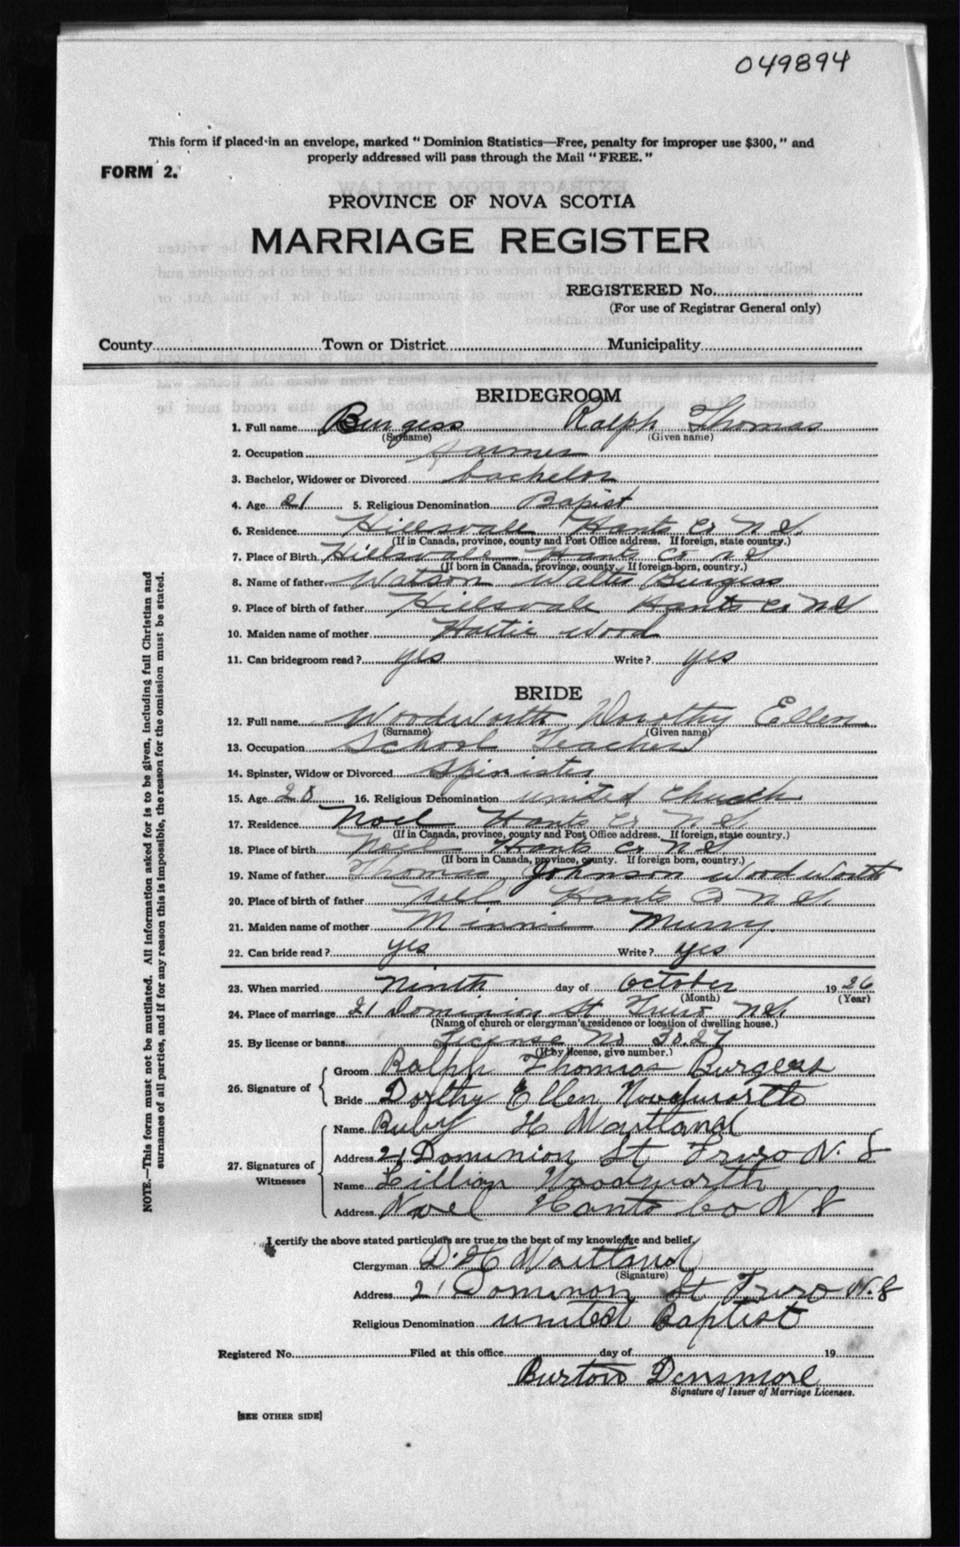 049894
This form if placed in an envelope, marked "Dominion Statistics—Free, penalty for improper use $300," and
properly addressed will pass through the Mail "FREE."
FORM 2.
PROVINCE OF NOVA SCOTIA
MARRIAGE REGISTER
REGISTERED No.
(For use of Registrar General only)
County Town or District Municipality
BRIDEGROOM
1. Full name Burgess Ralph Thomas
(Surname) (Given name)
2. Occupation Farmer
3. Bachelor, Widower or Divorced bachelor
4. Age 21 5. Religious Denomination Bapist
6. Residence Hillsvale Hants Co N S.
(If in Canada, province, county and Post Office address. If foreign, state country.)
7. Place of Birth Hillsvale Hants Co N S
(If born in Canada, province, county. If foreign born, country.)
8. Name of father Watson Walter Burgess
9. Place of birth of father Hillsvale Hants Co N S
10. Maiden name of mother Hattie Wood
11. Can bridegroom read? yes Write? yes
BRIDE
12. Full name Woodworth Dorothy Ellen
(Surname) (Given name)
13. Occupation School Teacher
14. Spinster, Widow or Divorced Spinister
15. Age 28 16. Religious Denomination united Chuch
17. Residence Noel Hants Co N S
(If in Canada, province, county and Post Office address. If foreign, state country.)
18. Place of birth Noel Hants Co N S
(If born in Canada, province, county. If foreign born, country.)
19. Name of father Thomas Johnson Woodworth
20. Place of birth of father Hants Co N S.
21. Maiden name of mother Minnie Murry.
22. Can bride read? yes Write? yes
23. When married Ninth day of October 1926
(Month) (Year)
24. Place of marriage 21 Dominion St Truro N S
(Name of church or clergyman's residence or location of dwelling house.)
25. By license or banns License No 3027
(If by license, give number.)
26. Signature of Groom Ralph Thomas Burgess
Bride Dorthy Ellen Woodworth
27. Signatures of Witnesses Name Ruby H Maitland
Address 21 Dominion St Truro N. S
Name Lillian Woodworth
Address Noel Hants Co N S
I certify the above stated particulars are true to the best of my knowledge and belief.
Clergyman D. H Maitland
(Signature)
Address 21 Dominon St Truro N. S
Religious Denomination united Baptist
Registered No. Filed at this office day of 19
Burton Densmore
Signature of Issuer of Marriage Licenses.
[SEE OTHER SIDE]
NOTE.—This form must not be mutilated. All information asked for is to be given, including full Christian and
surnames of all parties, and if for any reason this is impossible, the reason for the omission must be stated.